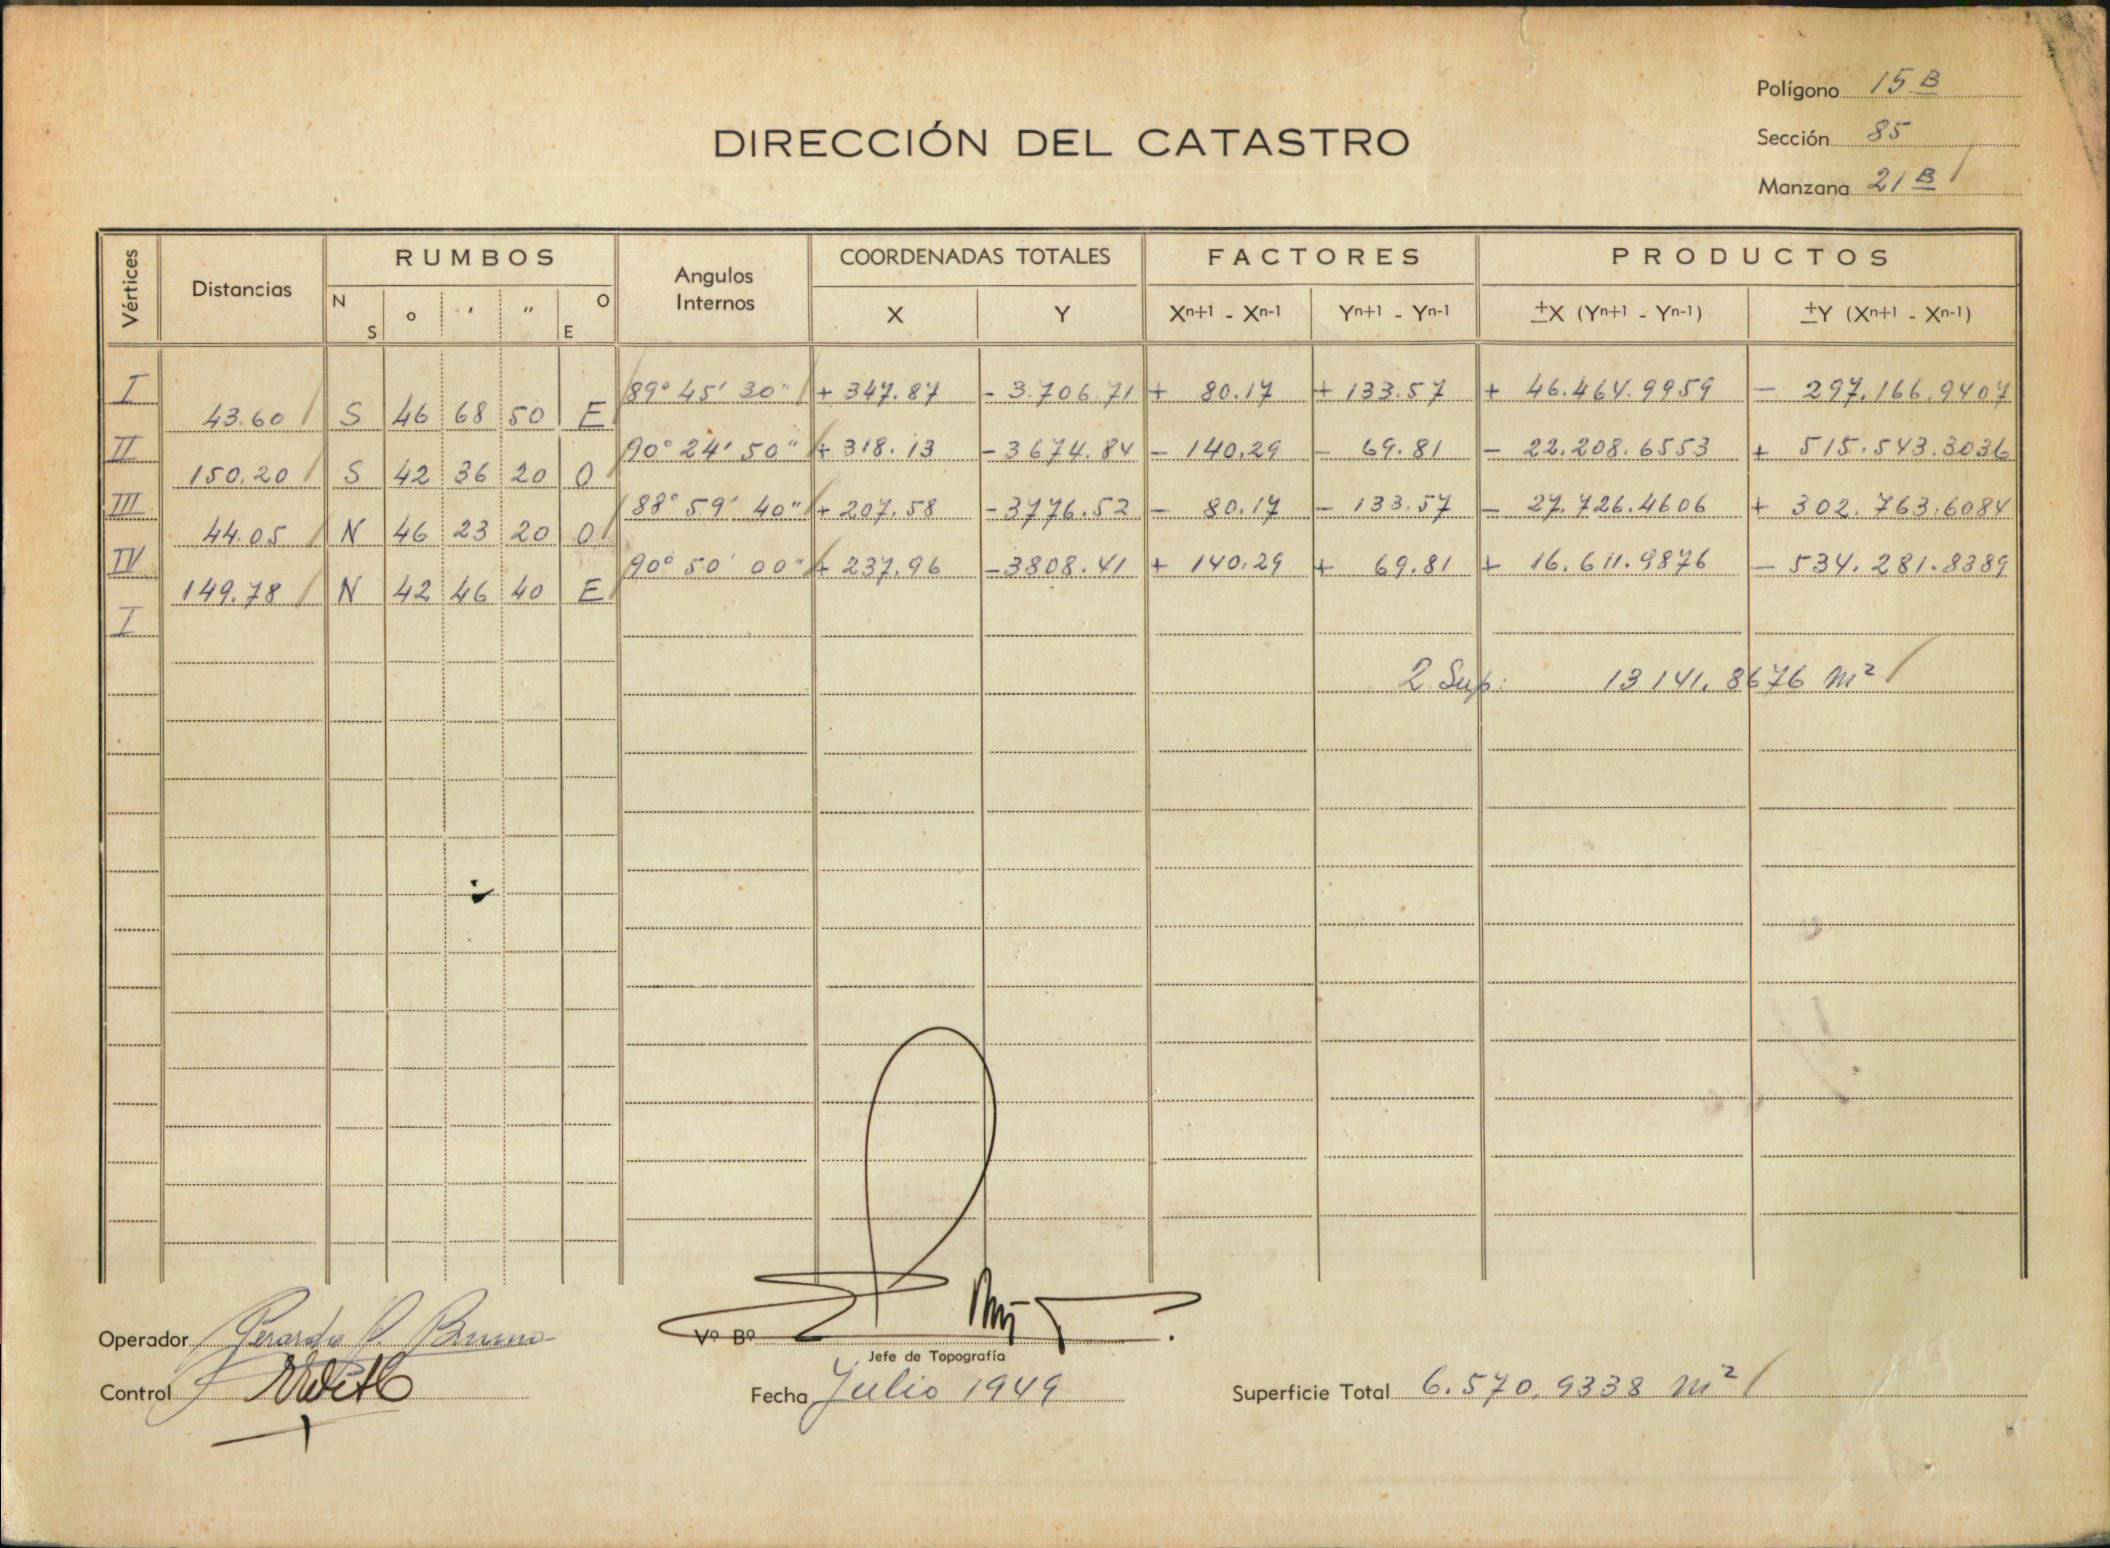 Polígono 15 B
DIRECCIÓN DEL CATASTRO
Sección 85
Manzana 21 B
Vértices Distancias RUMBOS Angulos Internos COORDENADAS TOTALES FACTORES PRODUCTOS
N S o ' " O E X Y Xn+1 - Xn-1 Yn+1 - Yn-1 ±X (Yn+1 - Yn-1) ±Y (Xn+1 - Xn-1)
I 89° 45' 30" + 347.87 - 3.706.71 + 80.17 + 133.57 + 46.464.9959 - 297.166.9407
43.60 S 46 68 50 E
II 90° 24' 50" + 318.13 - 3674.84 - 140.29 - 69.81 - 22.208.6553 + 515.543.3036
150.20 S 42 36 20 O
III 88° 59' 40" + 207.58 - 3776.52 - 80.17 - 133.57 - 27.726.4606 + 302.763.6084
44.05 N 46 23 20 O
IV 90° 50' 00" + 237.96 - 3808.41 + 140.29 + 69.81 + 16.611.9876 - 534.281.8389
149.78 N 42 46 40 E
I
2 Sup: 13141.8676 m²
Operador Gerardo P. Bruno
Vº Bº
Jefe de Topografía
Control
Fecha Julio 1949
Superficie Total 6.570.9338 m²